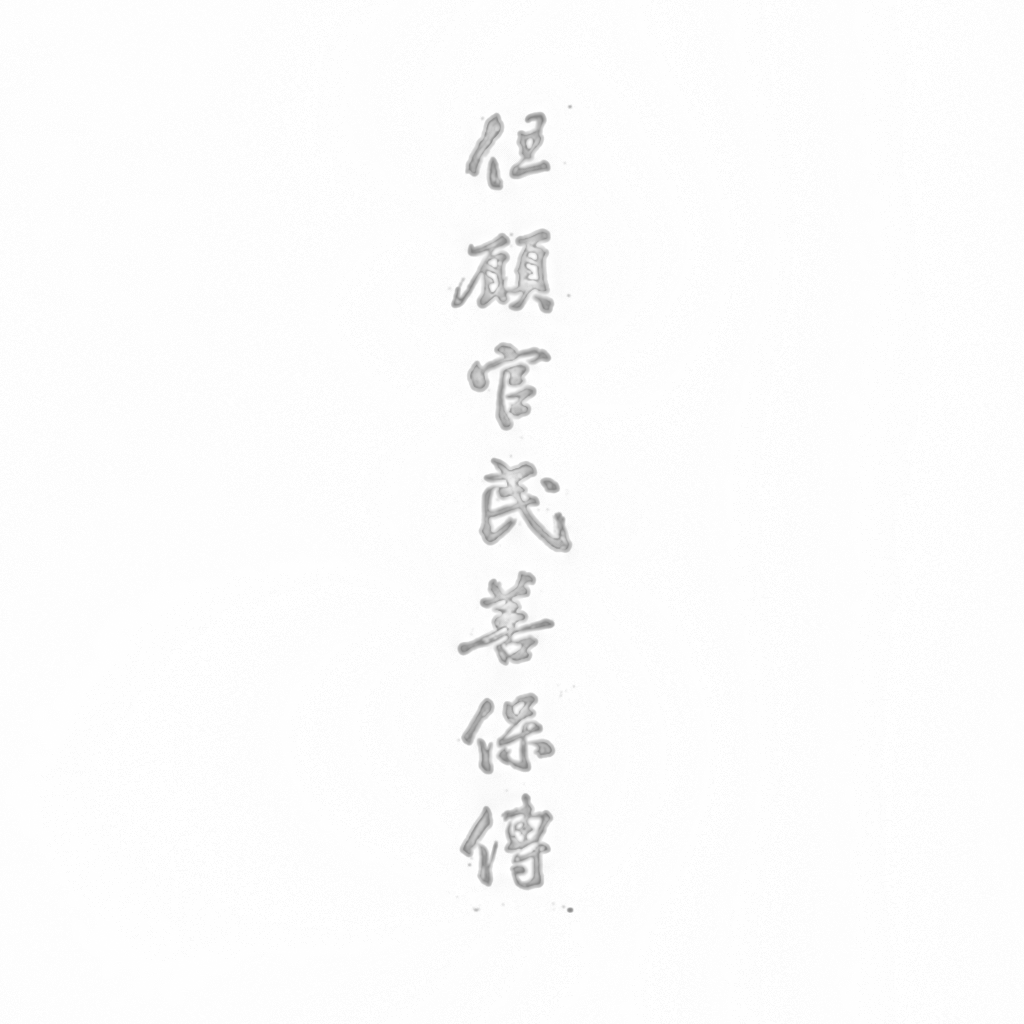 但願官民善保傳